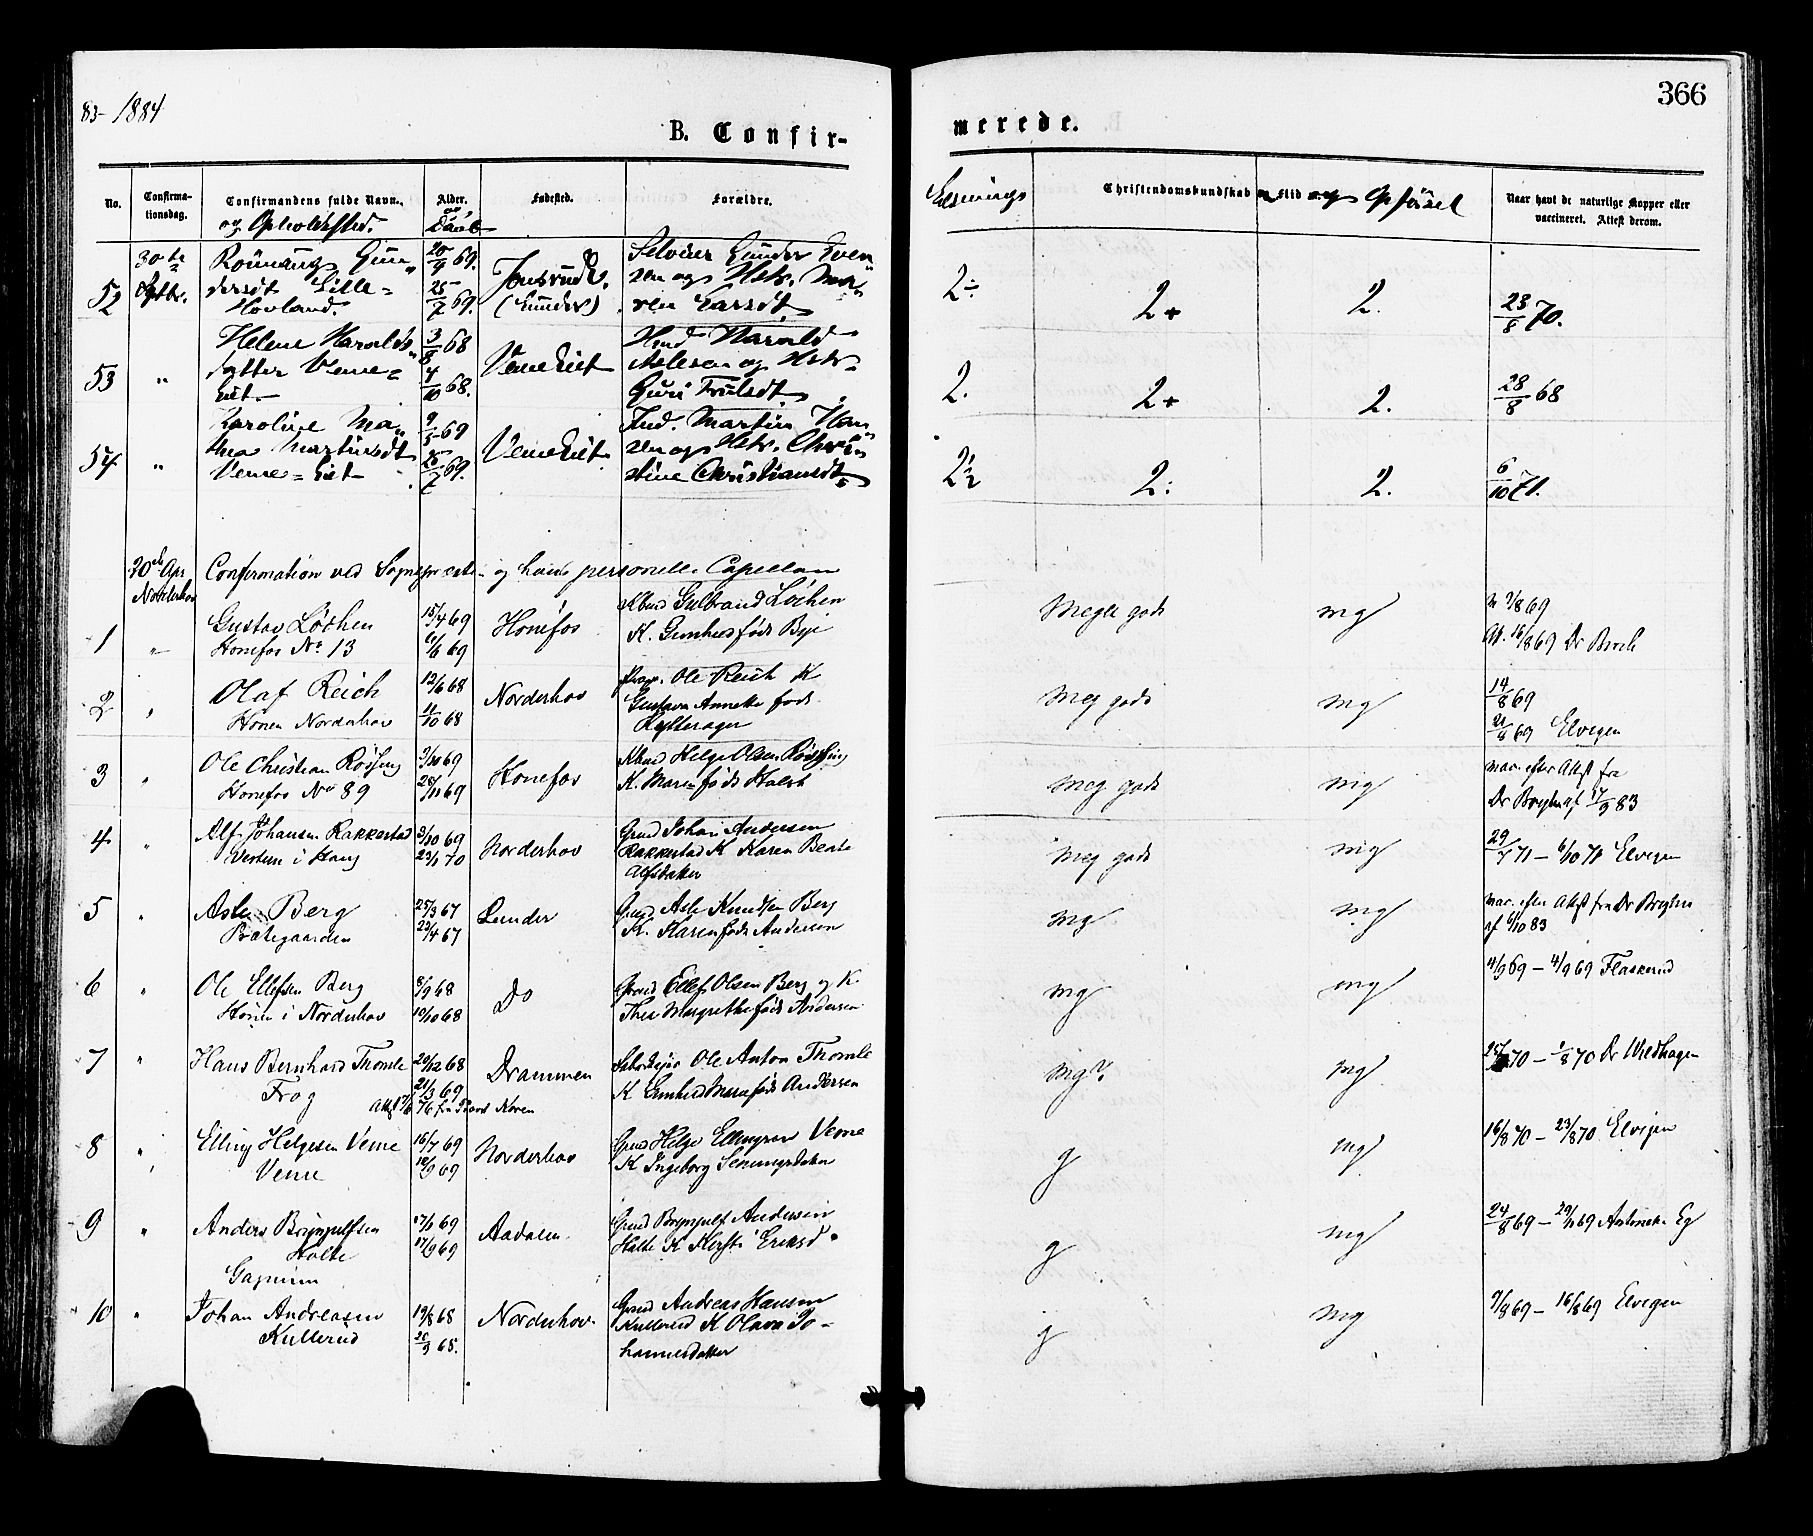 83- 1884
366
B. Confir-
merede.
No.
Confirma-
tionsdag.
Confirmandens fulde Navn.
og Opholdssted.
Alder.
og
Daab
Fødested.
Forældre.
Christendomskundskab
Flid og Opførsel
Naar havt de naturlige Kopper eller
vaccineret. Attest derom.
52
30te
Septbr.
Gun-
dersdt Lille-
Hovland.
20/4 69.
25/7 69.
Jonsrud
(Lunder)
Selveier Gunder Even-
sen og Hstr. Ma-
ren Larsdt.
2÷
2+
2.
23/8 70.
53
"
Helene Haralds-
datter Veme-
Eiet.
3/8 68
4/10 68.
Veme Eiet
Hmd Harald
Aslesen og Hstr.
Guri Trulsdt.
2.
2+
2.
28/8 68
54
"
Karoline Ma-
thea Martinsdt
Veme-Eiet
9/5 69
25/7 69.
Veme Eiet
Ind. Martin Han-
sen og Hstr. Chri-
stine Christiansdt.
2½
2:
2.
6/10 71.
30te Apr
Norderhov
Confirmation ved Sognepræsten og hans personelle Capellan
1
"
Gustav Løchen
Hønefos No 13
15/4 69
6/6 69
Hønefos
Kbmd Gulbrand Løchen
K. Gunhild født Bye
Meget godt
mg
16/8 69 Dr
2
"
Olaf Reich
Hønen Norderhov
12/6 68
11/10 68
Norderhov
Ole Reich K
Gustava Annette født
Meg godt
mg
14/8 69
21/8 69 Elvigen
3
"
Ole Christian Røising
Hønefos No 89
3/10 69
28/11 69
Hønefos
Kbmd Helge Olsen Røising
K. Maren født Holst
Meg godt
mg
vac. efter Attest fra
Dr 17/9 83
4
"
Alf Johansen Rakkestad
Vestern i Haug
3/10 69
23/1 70
Norderhov
Gmd Johan Andersen
Rakkestad K Karen Beate
Alfsdatter
Meg godt
mg
29/7 71 – 6/10 71 Elvigen
5
"
Asle Berg
Prætegaarden
25/3 67
22/4 67
Lunder
Gmd. Asle Knudsen Berg
K. Karen født Andersen
mg
mg
vac. efter Attest fra Dr
af 6/10 83
6
"
Ole Ellefsen Berg
Hønen i Norderhov
8/9 68
10/10 68
Do
Gmd Ellef Olsen Berg og K
Thea Margrethe født Andersen
mg
mg
4/9 69 – 4/9 69 Flaskerud
7
"
Hans Bernhard Thomle
Frog
20/12 68
21/3 69
Drammen
Ole Anton Thomle
K Gunhild Maren født Andersen
mg
mg
70 – 1/8 70 Dr Wildhagen
8
"
Elling Helgesen Veme
Veme
16/7 69
12/9 69
Norderhov
Gmd Helge Ellingsen Veme
K Ingeborg
g
mg
16/8 70 – 23/8 70 Elvigen
9
"
Anders Brynjulfsen
Holte
17/7 69
17/9 69
Aadalen
Gmd Brynjulf Andersen
Holte K Kjersti Eriksd
g
mg
24/8 69 – 29/11 69
10
"
Johan Andreasen
Kullerud
19/8 68
20/9 68.
Norderhov.
Gmd Andreas Hansen
Kullerud K Olava Jo-
hannesdatter
g
mg
9/8 69 – 16/8 69 Elvigen